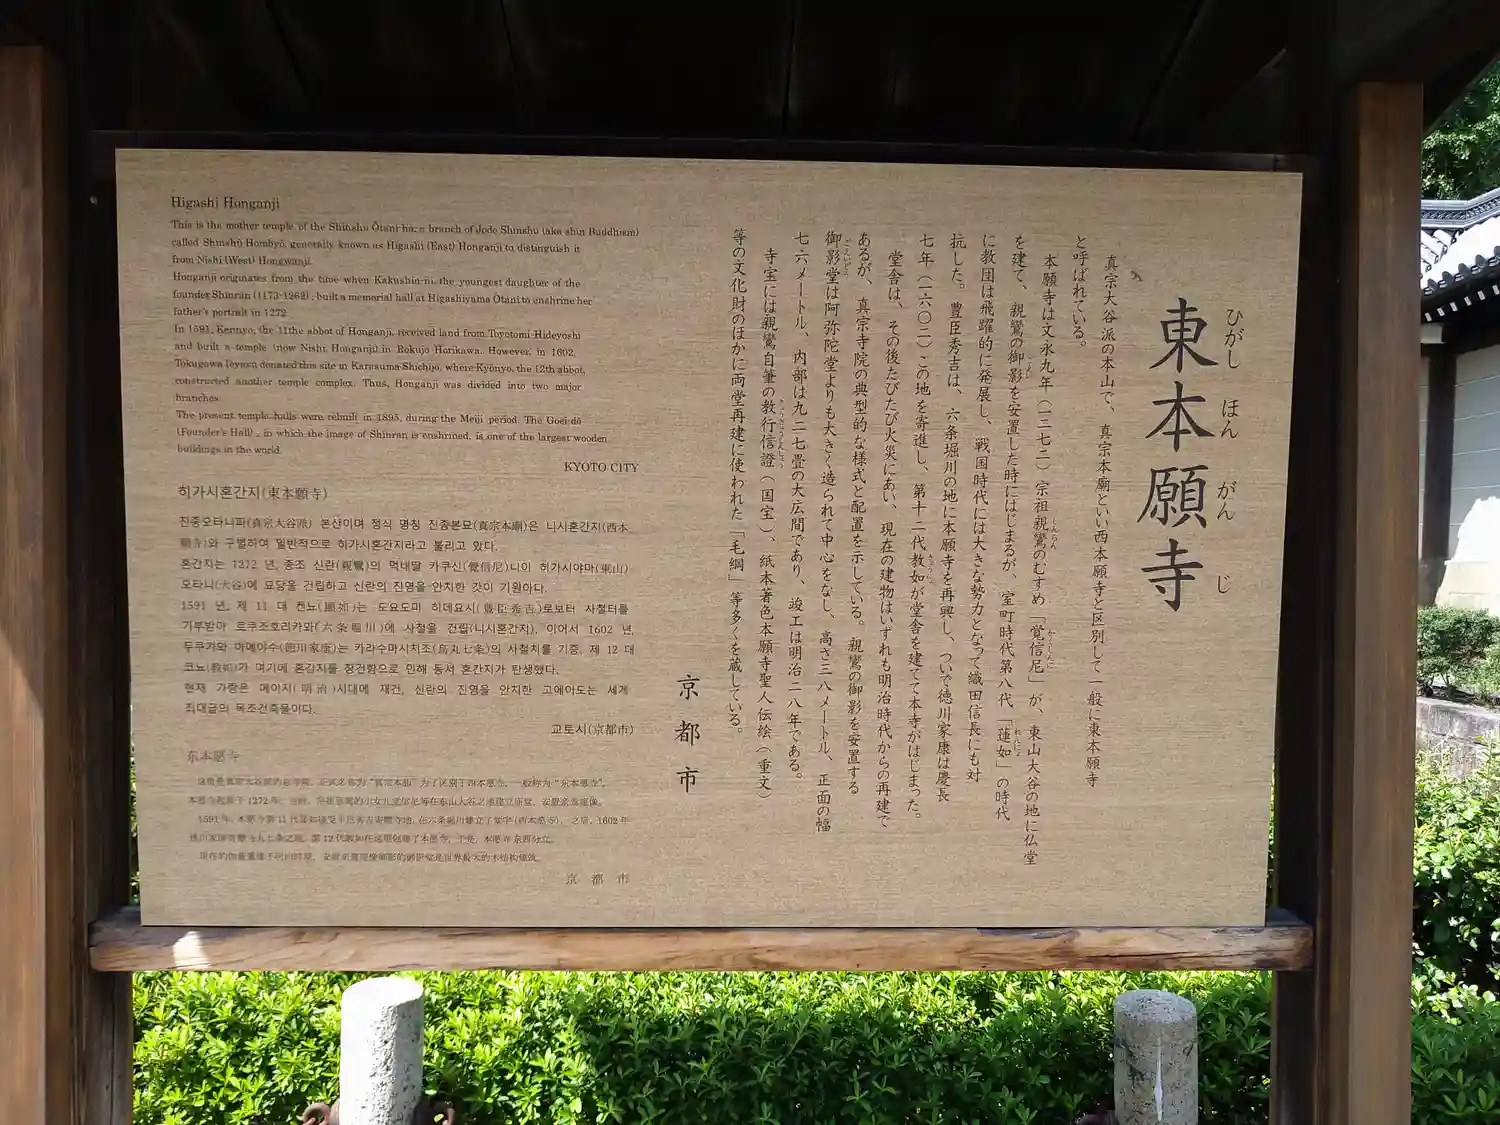 Higashi Honganji
This is the mother temple of the Shinshu Ōtani-ha, a branch of Jodo Shinshu (aka shin Buddhism)
called Shinshū Hombyō, generally known as Higashi (East) Honganji to distinguish it
from Nishi (West) Hongwanji.
Honganji originates from the time when Kakushin-ni, the youngest daughter of the
founder Shinran (1173-1262), built a memorial hall at Higashiyama Ōtani to enshrine her
father's portrait in 1272
In 1591, Kennyo, the 11the abbot of Honganji, received land from Toyotomi Hideyoshi
and built a temple (now Nishi Honganji) in Rokujo Horikawa. However, in 1602,
Tokugawa Ieyasu donated this site in Karasuma-Shichijō, where Kyōnyo, the 12th abbot,
constructed another temple complex. Thus, Honganji was divided into two major
branches.
The present temple halls were rebuilt in 1895, during the Meiji period. The Goei-dō
(Founder's Hall), in which the image of Shinran is enshrined, is one of the largest wooden
buildings in the world.
KYOTO CITY
히가시혼간지(東本願寺)
진종오타니파(真宗大谷派) 본산이며 정식 명칭 진종본묘(真宗本廟)은 니시혼간지(西本
願寺)와 구별하여 일반적으로 히가시혼간지라고 불리고 있다.
혼간지는 1272 년, 종조 신란(親鸞)의 막내딸 카쿠신(覺信尼)니이 히가시야마(東山)
오타니(大谷)에 묘당을 건립하고 신란의 진영을 안치한 것이 기원이다.
1591 년, 제 11 대 켄뇨(顯如)는 도요도미 히데요시(豊臣秀吉)로부터 사철터를
기부받아 로쿠조호리카와(六条堀川)에 사철을 건립(니시혼간지), 이어서 1602 년,
두쿠가와 이에야수(徳川家康)는 카라수마시치조(烏丸七条)의 사철지를 기증, 제 12 대
쿄뇨(教如)가 여기에 혼간지를 창건함으로 인해 동서 혼간지가 탄생했다.
현재 가람은 메이지(明治)시대에 재건, 신란의 진영을 안치한 고에이도는 세계
최대급의 목조건축물이다.
교토시(京都市)
东本愿寺
1591年，本愿寺第11代
京都市
ひがし ほん がん じ
東本願寺
真宗大谷派の本山で、真宗本廟といい西本願寺と区別して一般に東本願寺
と呼ばれている。
本願寺は文永九年（一二七二）宗祖親鸞のむすめ「覚信尼」が、東山大谷の地に仏堂
を建て、親鸞の御影を安置した時にはじまるが、室町時代第八代「蓮如」の時代
に教団は飛躍的に発展し、戦国時代には大きな勢力となって織田信長にも対
抗した。豊臣秀吉は、六条堀川の地に本願寺を再興し、ついで徳川家康は慶長
七年（一六〇二）この地を寄進し、第十二代教如が堂舎を建てて本寺がはじまった。
堂舎は、その後たびたび火災にあい、現在の建物はいずれも明治時代からの再建で
あるが、真宗寺院の典型的な様式と配置を示している。親鸞の御影を安置する
御影堂は阿弥陀堂よりも大きく造られて中心をなし、高さ三八メートル、正面の幅
七六メートル、内部は九二七畳の大広間であり、竣工は明治二八年である。
寺宝には親鸞自筆の教行信證（国宝）、紙本著色本願寺聖人伝絵（重文）
等の文化財のほかに両堂再建に使われた「毛綱」等多くを蔵している。
京都市